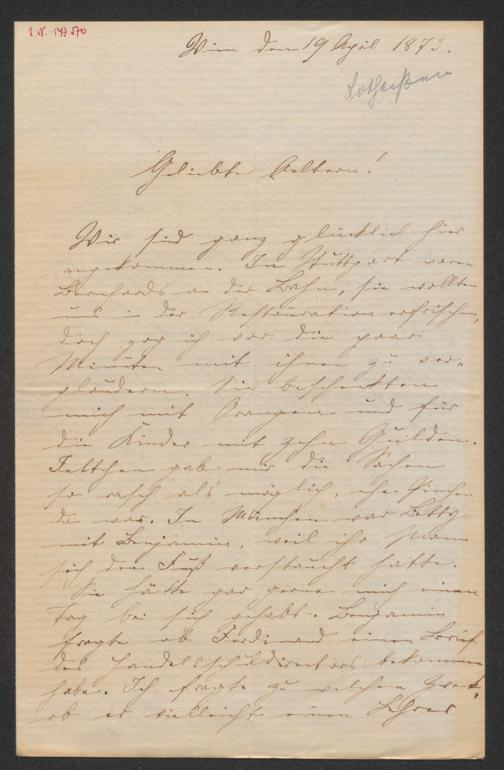 I.N. 147.570
Wien den 19 April 1873.
Lotheißen
Geliebte Aeltern!
Wir sind ganz glücklich hier
angekommen. In Stuttgart waren
Bernhards an der Bahn, sie wollten
uns in der Restauration erfrischen,
doch zog ich vor die paar
Minuten mit ihnen zu ver-
plaudern. Sie beschenkten
mich mit Orangen und für
die Kinder mit zehn Gulden.
Jettchen gab mir die Sachen
so rasch als möglich, ehe
da war. In München war Betty
mit Benjamin, weil ihr Mann
sich den Fuß verstaucht hatte.
Sie hätte gar gerne mich einen
Tag bei sich gehabt. Benjamin
fragte ob Ferdinand einen Brief
des Handelsschuldirectors bekommen
habe. Ich fragte zu welchem Zweck,
ob er vielleicht einen Lehrer